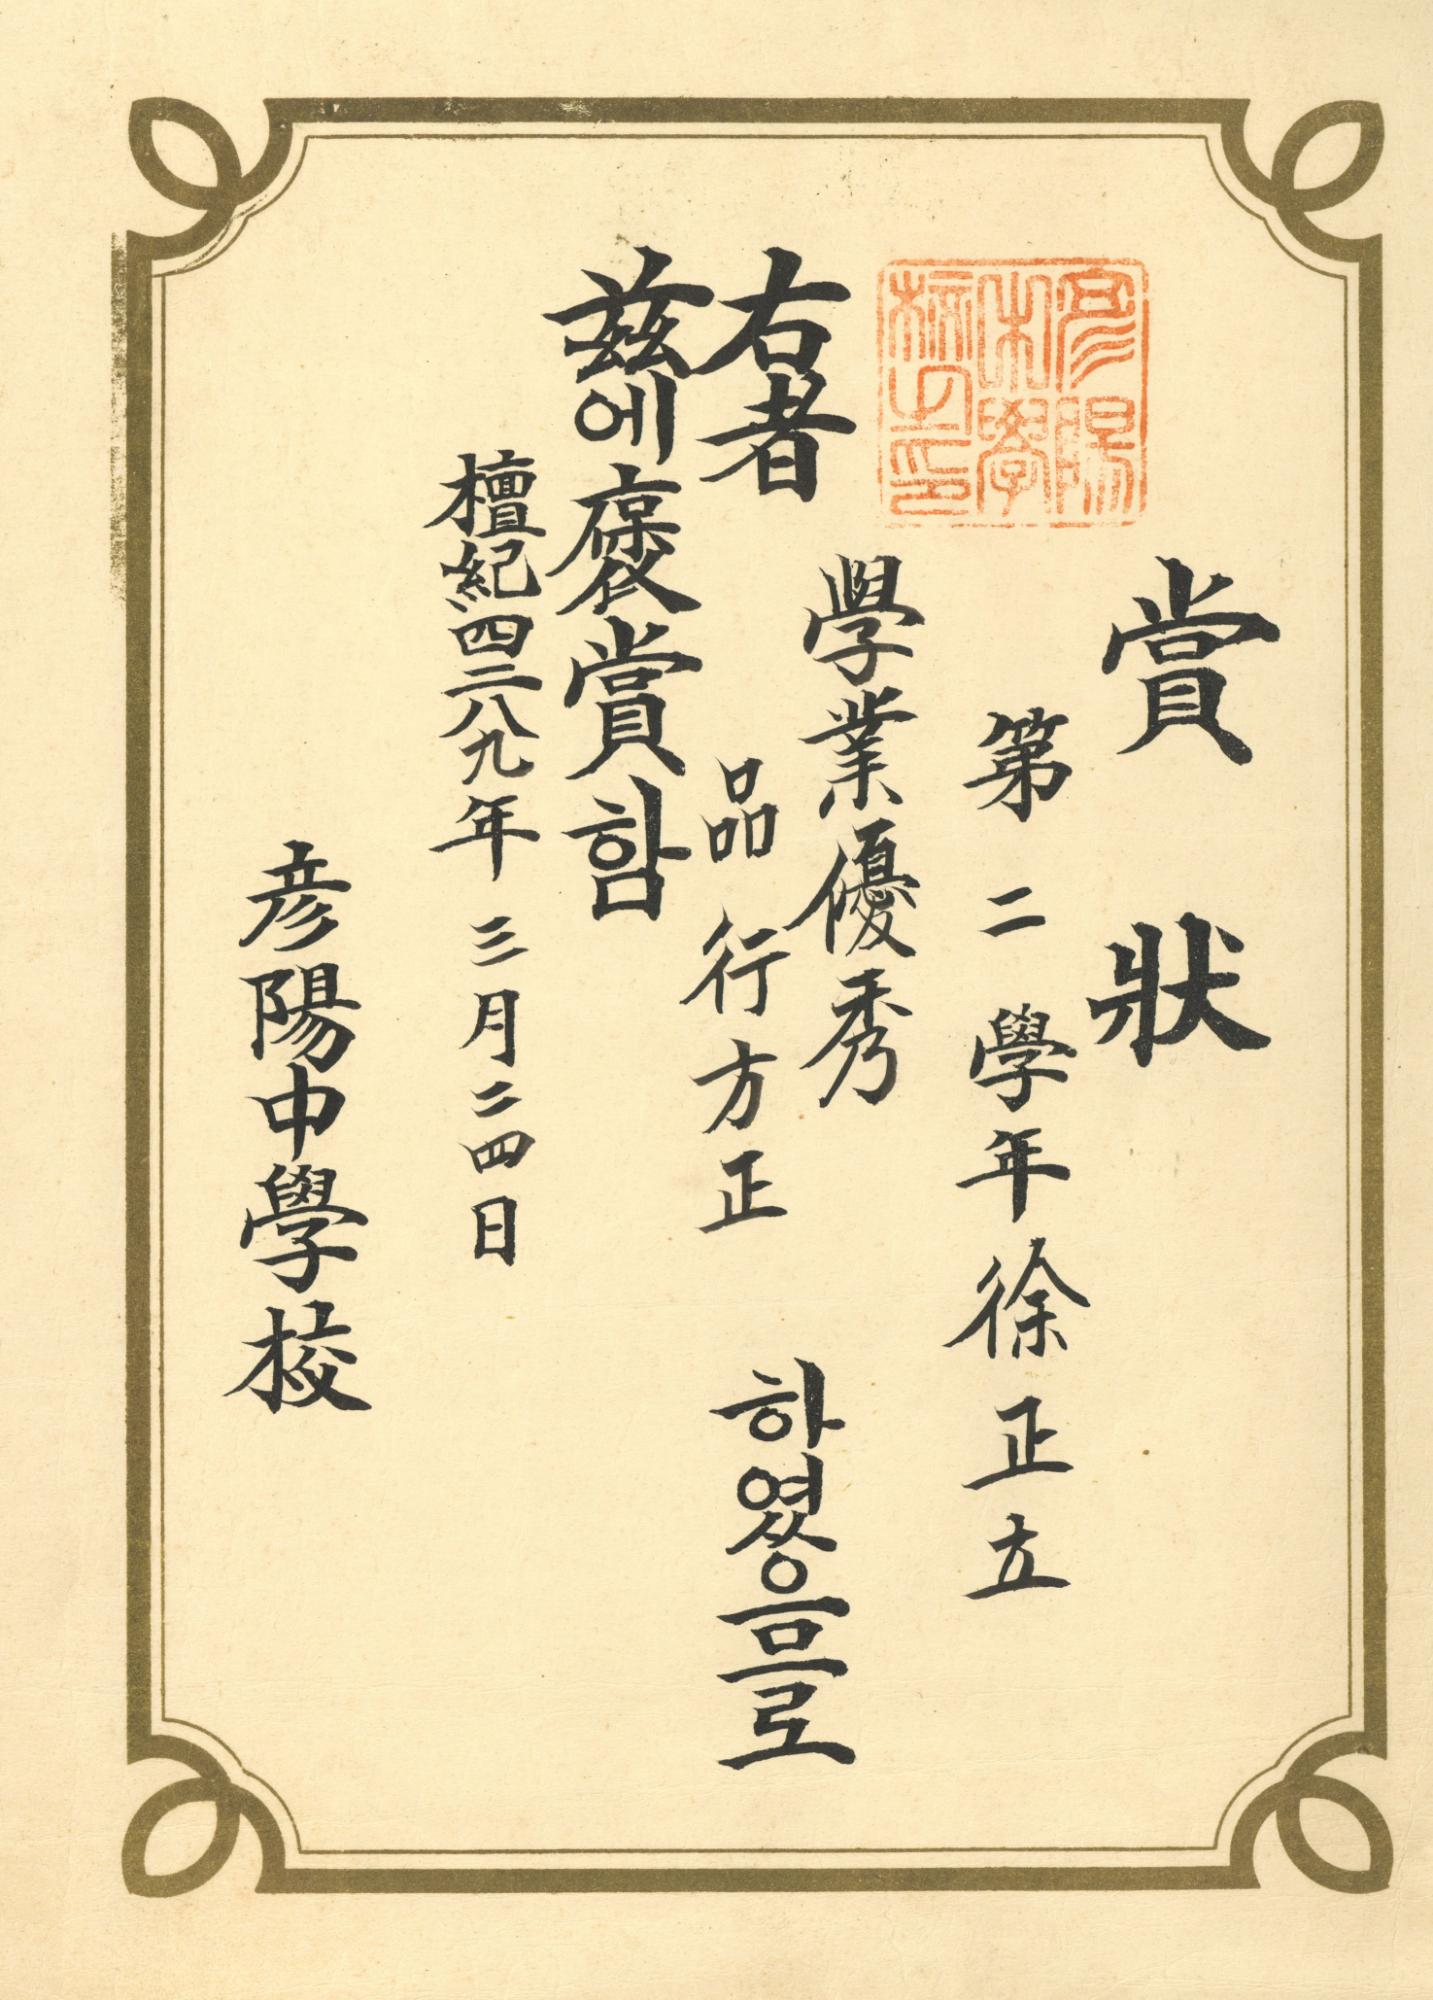 賞狀
第二學年 徐正立
右者 學業優秀
品行方正 하였음므로
玆에 褒賞함
檀紀四二八九年 三月二四日
彦陽中學校